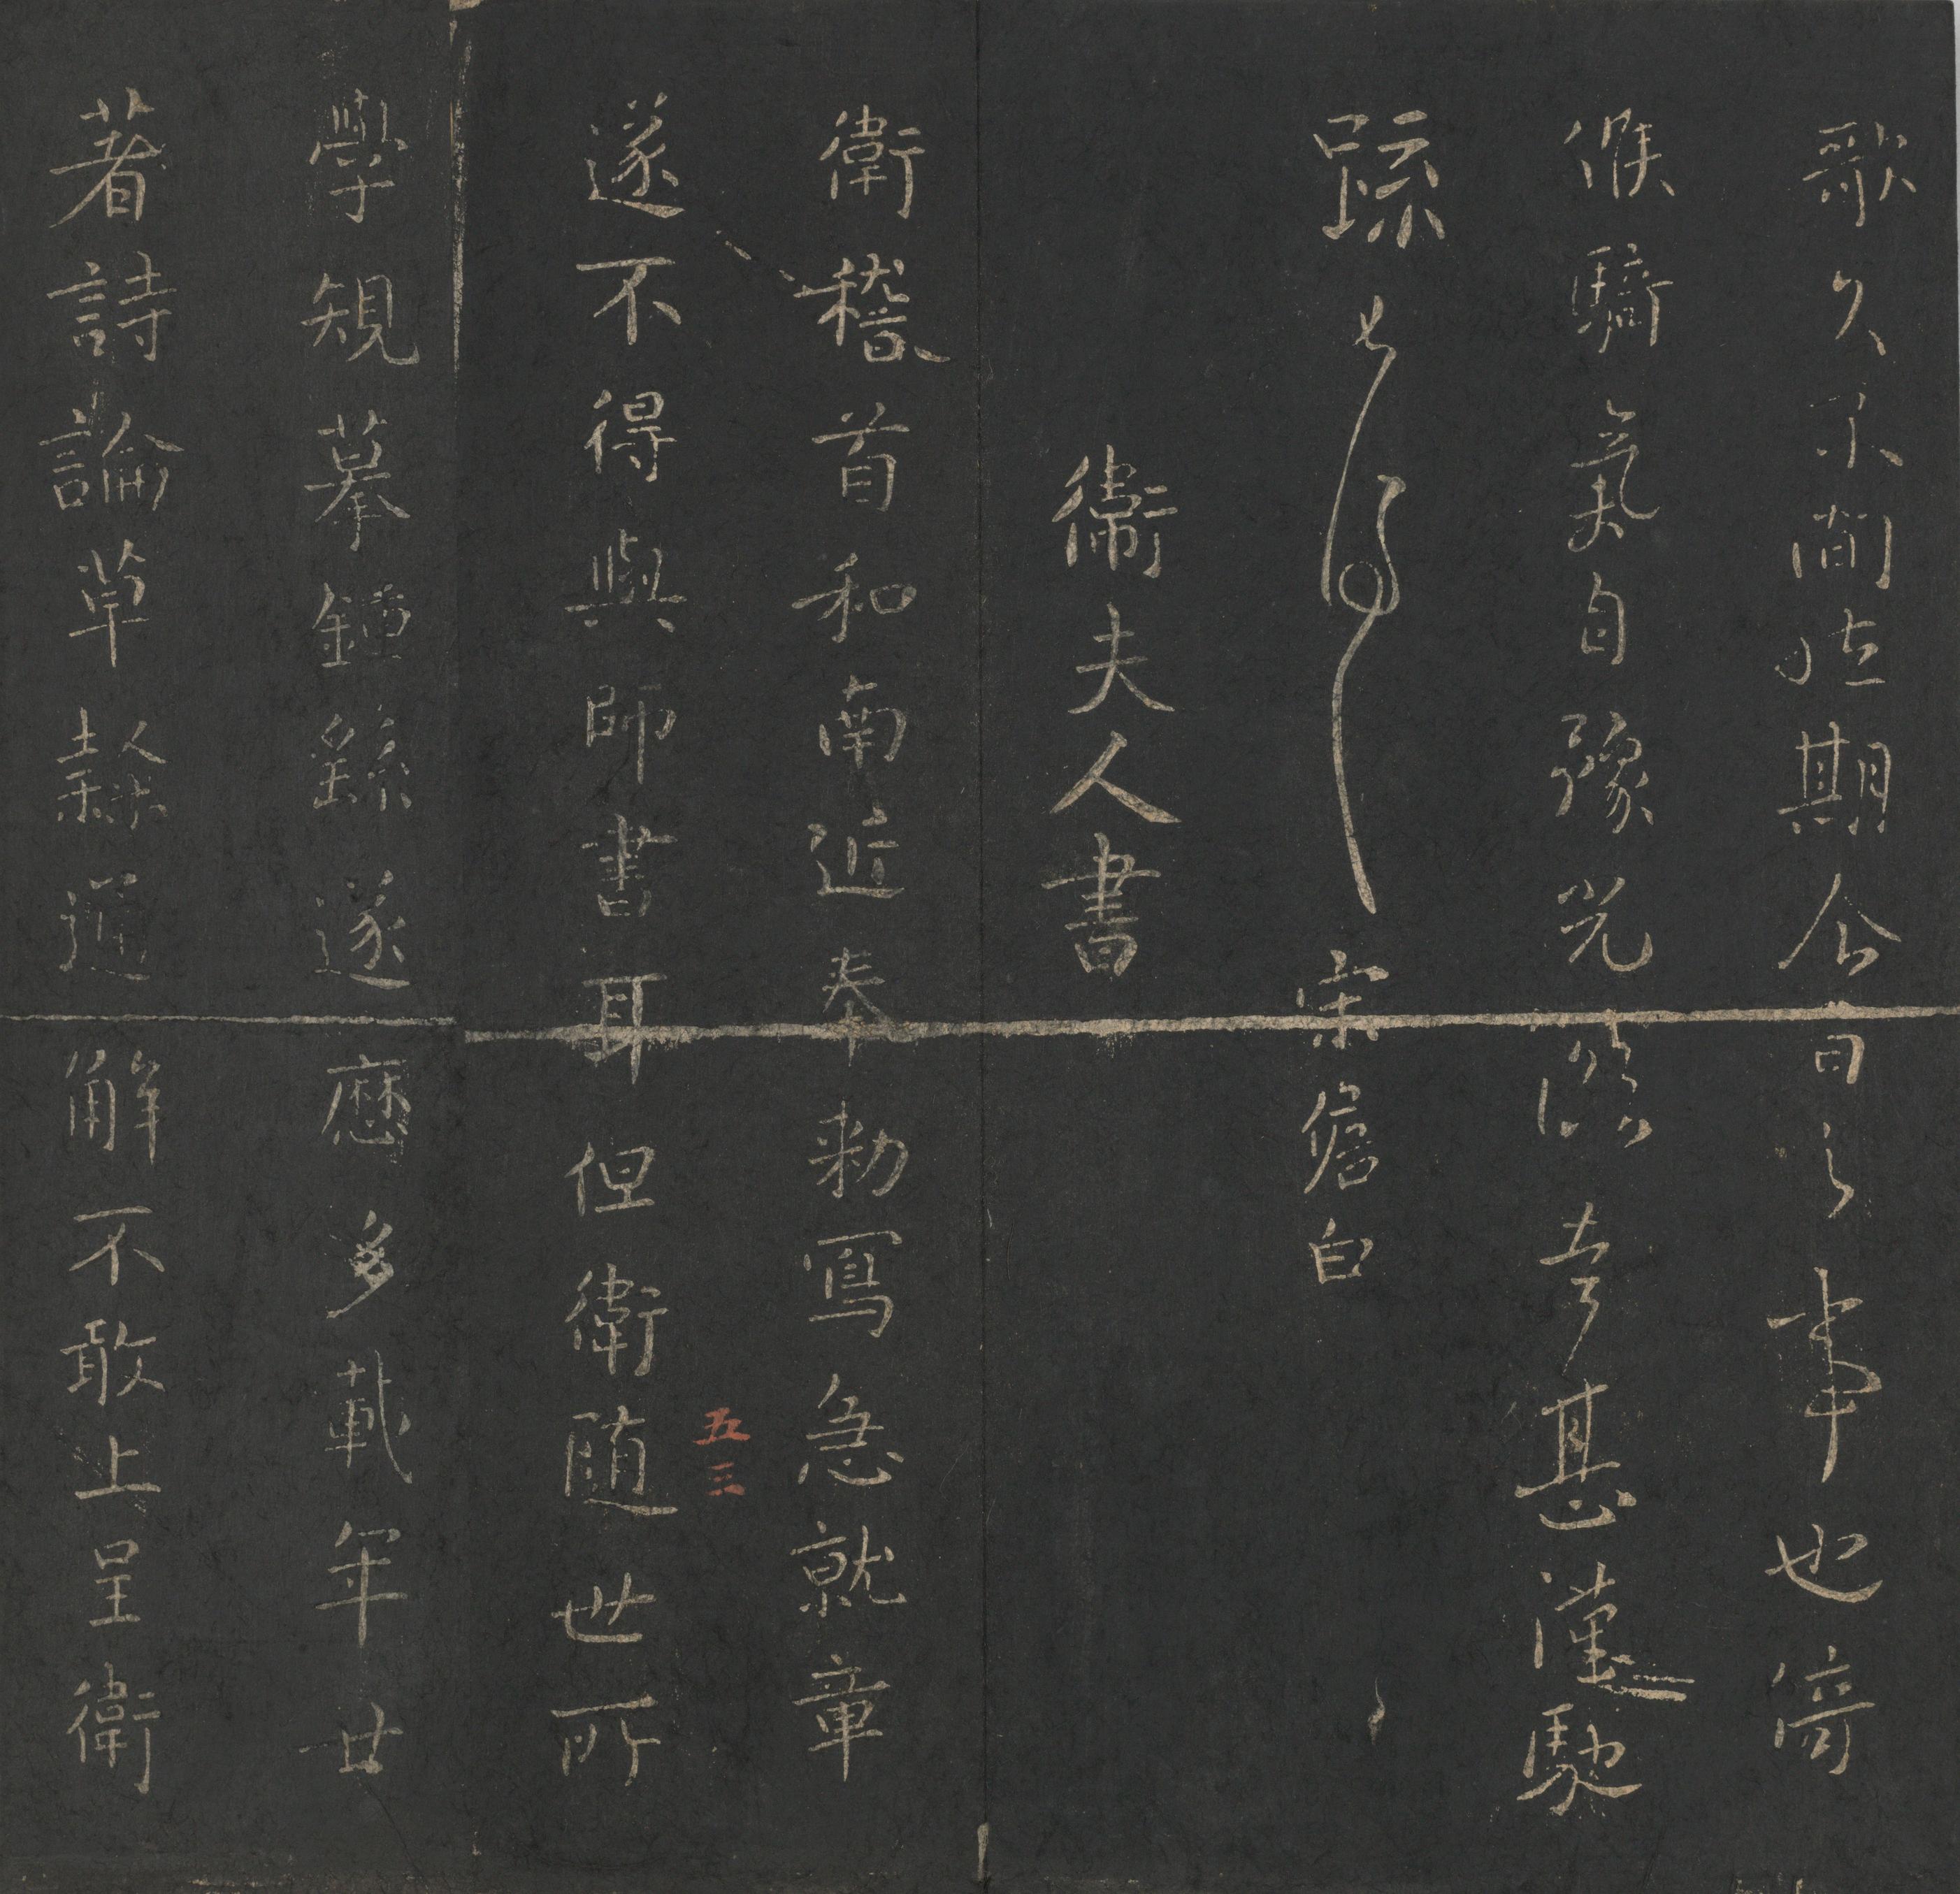 歌久不简也期公曰之事也倚
候騎氣自豫光浴幸甚謹馳
疏
宋儋白
衛夫人書
衛稽首和南近奉勅寫急就章
遂不得與師書耳但衛隨世所
學規摹鍾繇遂歷多載年廿
著詩論草隸通解不敢上呈衛
五三